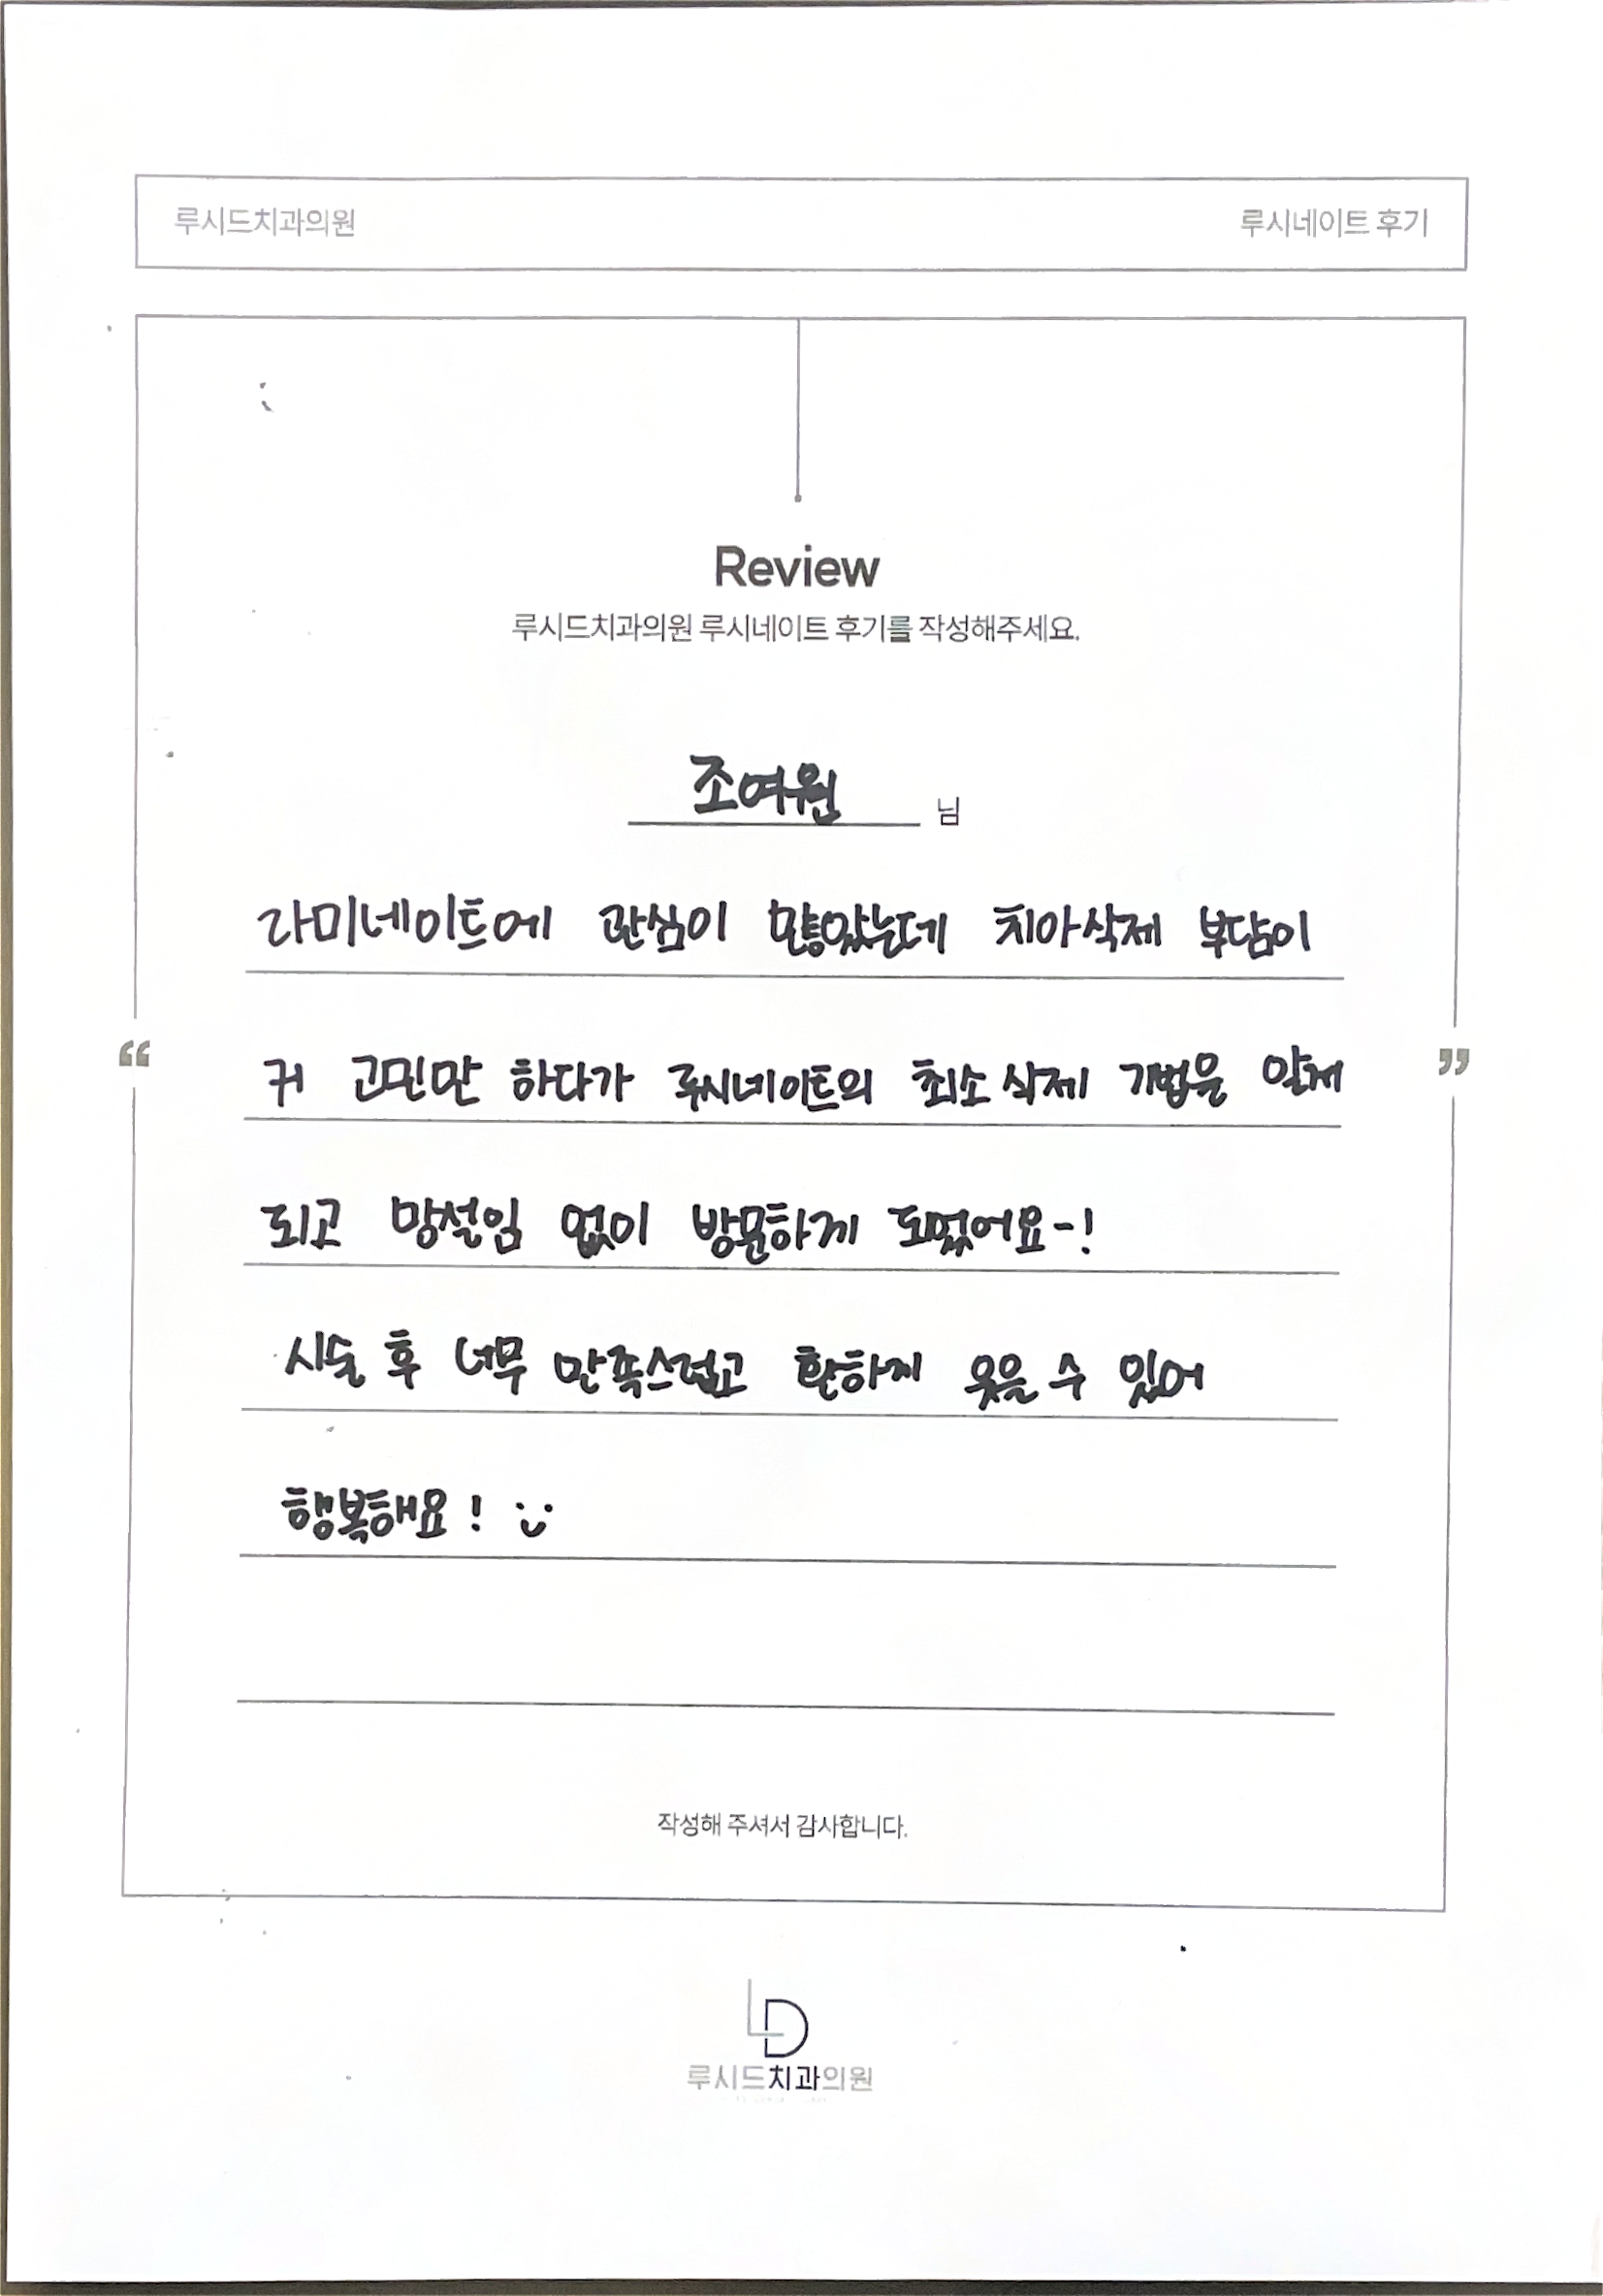 루시드치과의원 루시네이트 후기
Review
루시드치과의원 루시네이트 후기를 작성해주세요.
조여원 님
라미네이트에 관심이 많았는데 치아삭제 부담이
“ 커 고민만 하다가 루시네이트의 최소 삭제 기법을 알게 ”
되고 망설임 없이 방문하게 되었어요-!
시술 후 너무 만족스럽고 환하게 웃을 수 있어
행복해요! :)
작성해 주셔서 감사합니다.
LD
루시드치과의원